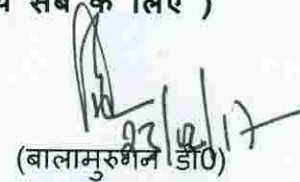 सब के लिए )
23/12/17
(बालामुरुगन डी0)